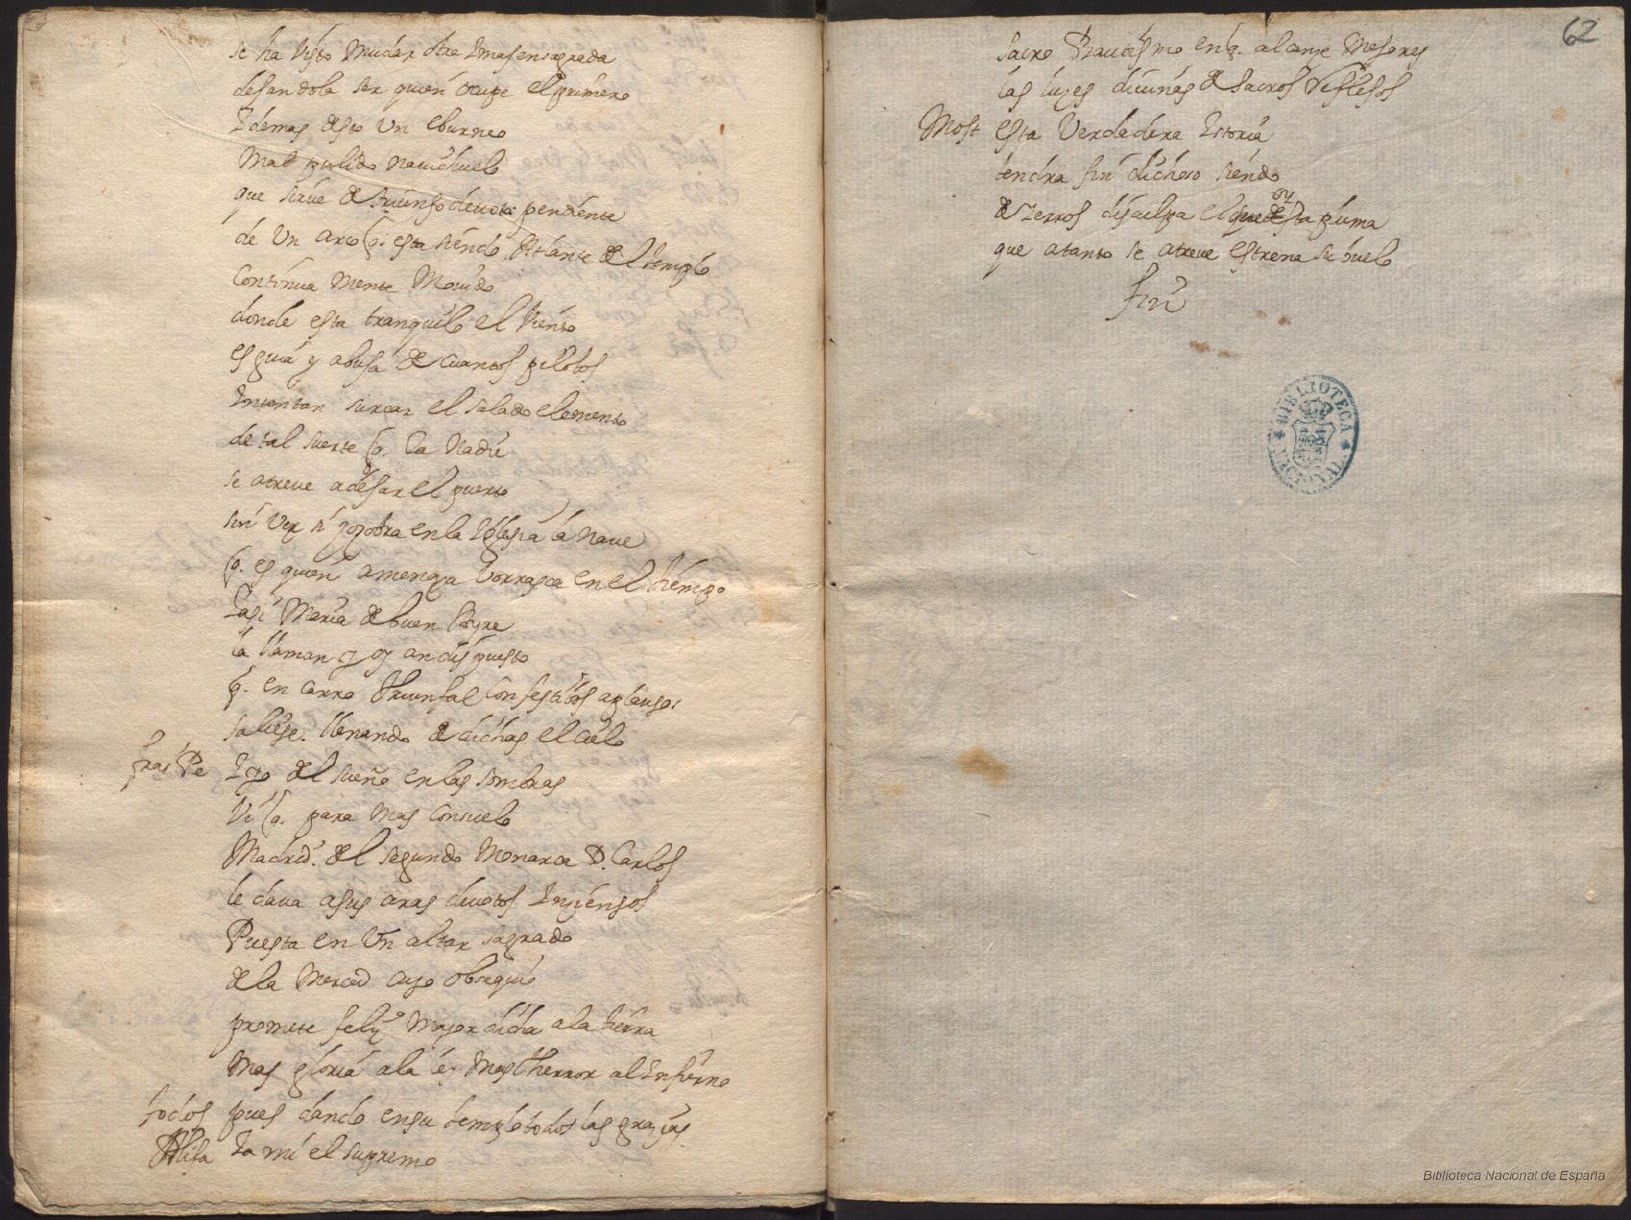 se ha visto mudar otra Imagen sagrada
desandola ser quien ocupe el primero
Idemas desto Un eburneo
mal pulido nauichuelo
que sirue de triunfo deuoto pendiente
de Un arco q. esta siendo Atlante del templo
Continua mente Mouido
donde esta tranquilo el Viento
es guia y abusa de cuantos pilotos
Intentan surcar el salado elemento
de tal suerte q. Ia nadie
se atreue adesar el puerto
sin Ver si zozobra en la Iglesia la naue
q. es quien amenaza borrasca en el tiempo
Iasi Maria de buen Ayre
la llaman y oy an dispuesto
q. en carro Triunfal con festibos aplausos
saliese. llenando de dichas el cielo
fra. Pe Iyo del sueño en las sombras
Vi q. para mas Consuelo
Madrid. del segundo Monarca D. Carlos
le daua asus aras deuotos Inzienzos
Puesta en Un altar sagrado
de la Merced cuyo obsequio
promete feliz mayor dicha a la tierra
Mas gloria a la fe, Mas therror al Infierno
todos pues dando en su templo todos las grazias
Atila Ia mi el supremo
62
sacro Bautismo en q. alcanze Mejores
las luzes diuinas de sacros reflejos
Most esta Verdadera Istoria
tendra fin dichoso siendo
de zerros disculpa el que oy esta pluma
que atanto se atreue estrena su buelo
fin
BIBLIOTECA NACIONAL
Biblioteca Nacional de España